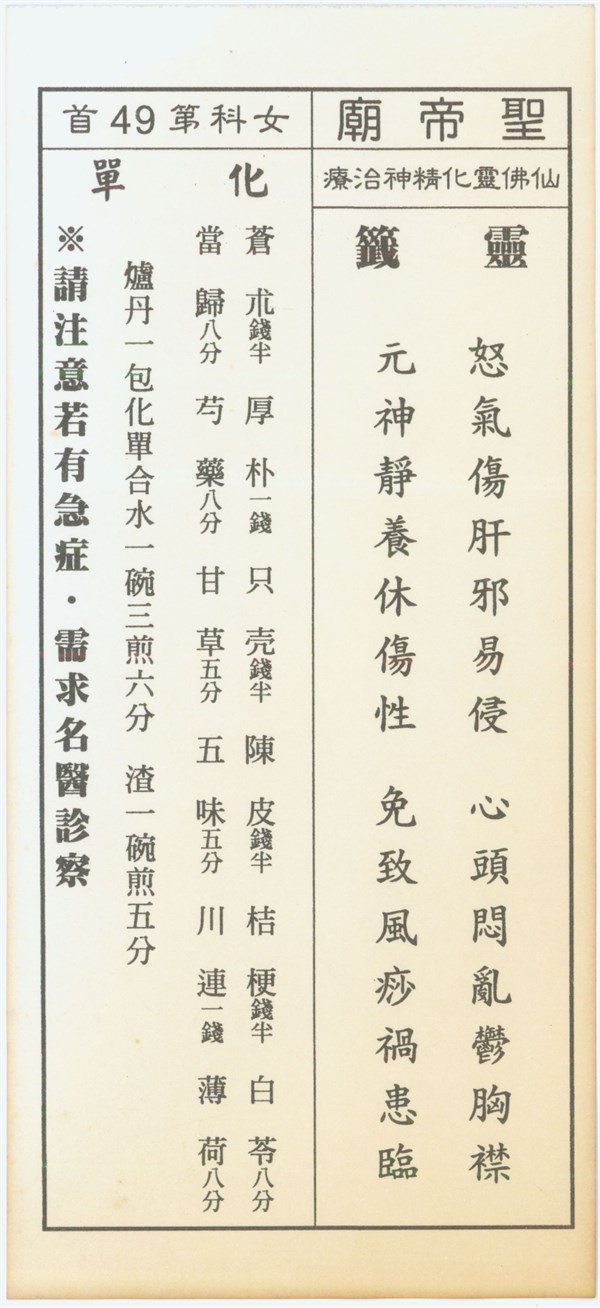 聖帝廟
仙佛靈化精神治療
靈籤
怒氣傷肝邪易侵 心頭悶亂鬱胸襟
元神靜養休傷性 免致風痧禍患臨
女科第49首
化單
蒼朮錢半 厚朴一錢 只壳錢半 陳皮錢半 桔梗錢半 白苓八分
當歸八分 芍藥八分 甘草五分 五味五分 川連一錢 薄荷八分
爐丹一包化單合水一碗三煎六分 渣一碗煎五分
※請注意若有急症．需求名醫診察